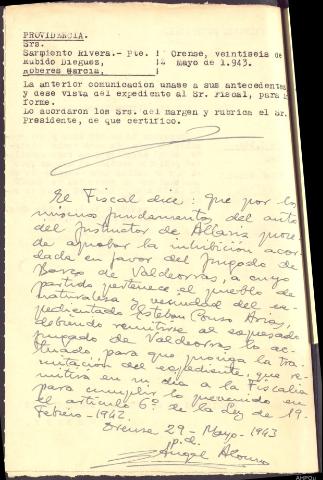 PROVIDENCIA.
Srs.
Sarmiento Rivera.- Pte. ! Orense, veintiseis de
Rubido Dieguez, ! Mayo de 1.943.
Roberes García, !
La anterior comunicacion unase a sus antecedentes
y dese vista del expediente al Sr. Fiscal, para
forme.
Lo acordaron los Srs. del margen y rubrica el Sr.
Presidente, de que certifico.
El Fiscal dice: que por los
mismos fundamentos del auto
del Instructor de Allariz proce
de aprobar la inhibición acor
dada en favor del Juzgado de
Barco de Valdeorras, a cuyo
partido pertenece el pueblo de
naturaleza y vecindad del ex-
pedientado Esteban Arias,
debiendo remitirse al expresado
Juzgado de Valdeorras lo ac-
tuado, para que prosiga la tra-
mitación del expediente, que re-
mitirá en su día a la Fiscalia
para cumplir lo prevenido en
el artículo 6º de la Ley de 19-
Febrero-1942.
Orense 29-Mayo-1943
p.d.
Angel Alonso
AHPOu